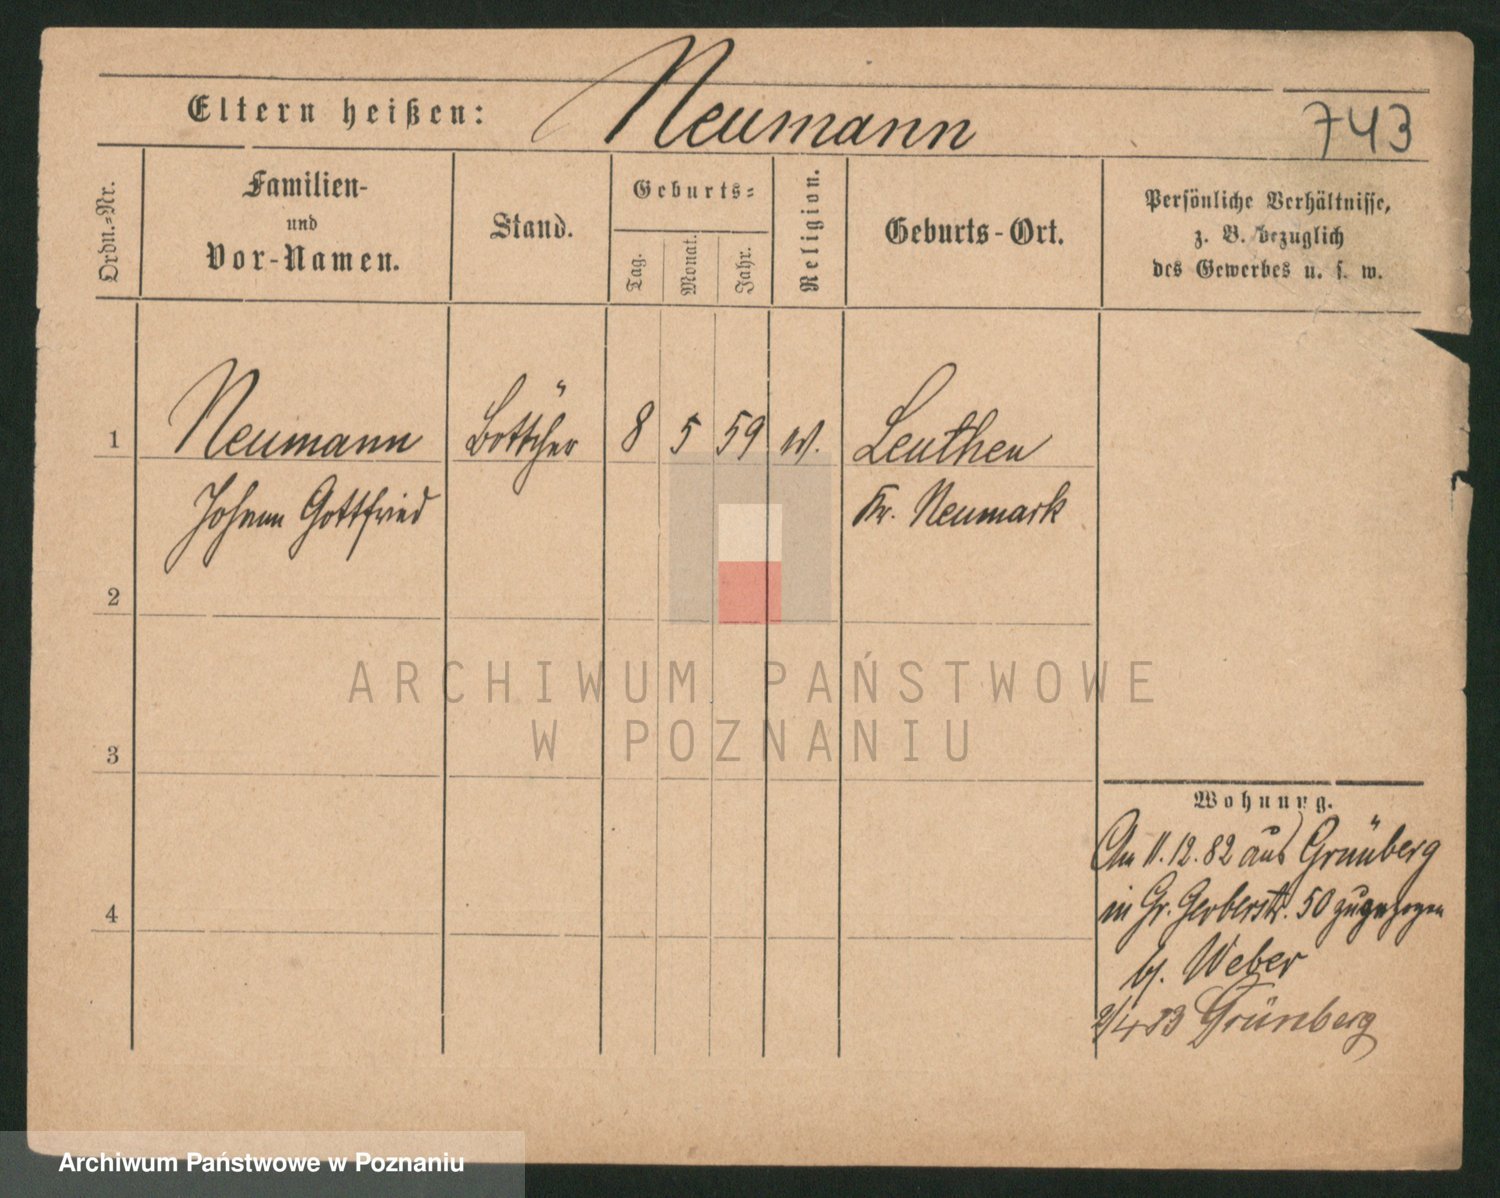 Eltern heißen: Neumann 743
Ordn.-Nr.
Familien-
und
Vor-Namen.
Stand.
Geburts-
Tag.
Monat.
Jahr.
Religion.
Geburts-Ort.
Persönliche Verhältnisse,
z. B. bezuglich
des Gewerbes u. s. w.
1 Neumann Böttcher 8 5 59 Leuthen
Johann Gottfried Kr. Neumark
2
3
4
Wohnung.
Am 11.12.82 aus Grünberg
in Gr. Gerberstr. 50 zugezogen
bj. Weber
2/4 83 Grünberg
ARCHIWUM PAŃSTWOWE
W POZNANIU
Archiwum Państwowe w Poznaniu